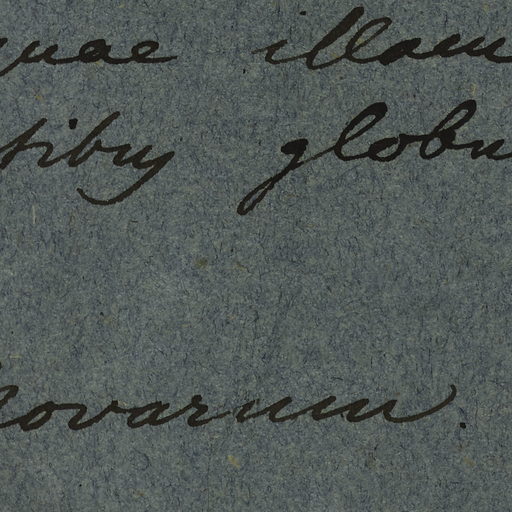 quae illam
tibus globu
novarum.